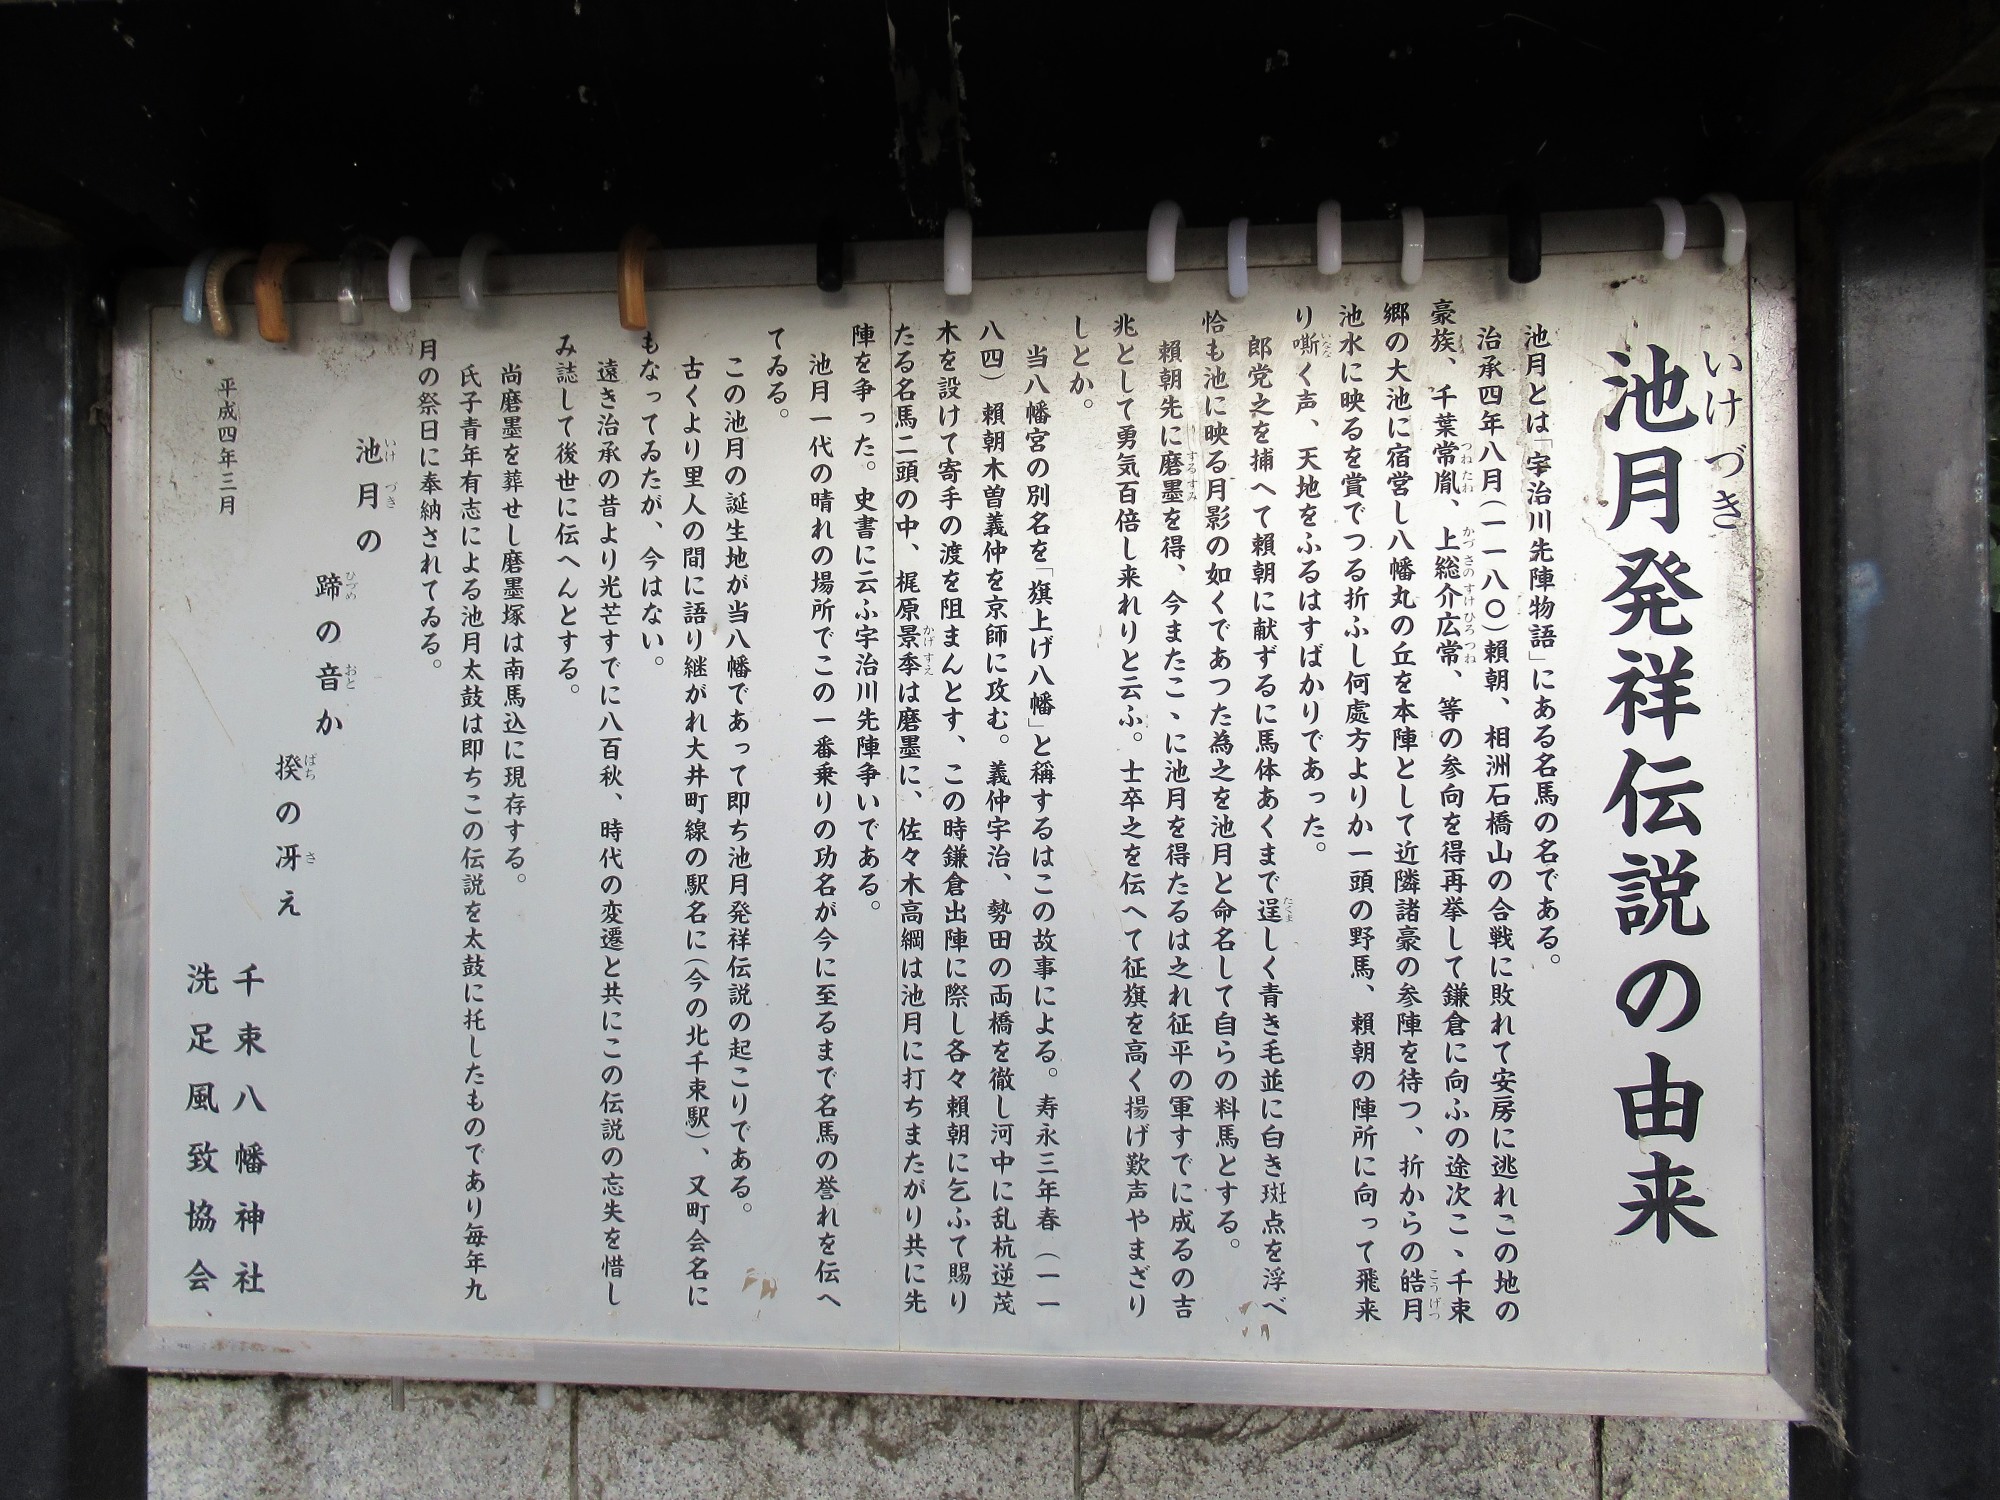 いけづき
池月発祥伝説の由来
池月とは「宇治川先陣物語」にある名馬の名である。
治承四年八月（一一八〇）頼朝、相洲石橋山の合戦に敗れて安房に逃れこの地の
豪族、千葉常胤、上総介広常、等の参向を得再挙して鎌倉に向ふの途次こゝ千束
郷の大池に宿営し八幡丸の丘を本陣として近隣諸豪の参陣を待つ、折からの皓月
池水に映るを賞でつる折ふし何處方よりか一頭の野馬、頼朝の陣所に向って飛来
り嘶く声、天地をふるはすばかりであった。
郎党之を捕へて頼朝に献ずるに馬体あくまで逞しく青き毛並に白き斑点を浮べ
恰も池に映る月影の如くであつた為之を池月と命名して自らの料馬とする。
頼朝先に磨墨を得、今またこゝに池月を得たるは之れ征平の軍すでに成るの吉
兆として勇気百倍し来れりと云ふ。士卒之を伝へて征旗を高く揚げ歓声やまざり
しとか。
当八幡宮の別名を「旗上げ八幡」と稱するはこの故事による。寿永三年春（一一
八四）頼朝木曽義仲を京師に攻む。義仲宇治、勢田の両橋を徹し河中に乱杭逆茂
木を設けて寄手の渡を阻まんとす、この時鎌倉出陣に際し各々頼朝に乞ふて賜り
たる名馬二頭の中、梶原景季は磨墨に、佐々木高綱は池月に打ちまたがり共に先
陣を争った。史書に云ふ宇治川先陣争いである。
池月一代の晴れの場所でこの一番乗りの功名が今に至るまで名馬の誉れを伝へ
てゐる。
この池月の誕生地が当八幡であって即ち池月発祥伝説の起こりである。
古くより里人の間に語り継がれ大井町線の駅名に（今の北千束駅）、又町会名に
もなってゐたが、今はない。
遠き治承の昔より光芒すでに八百秋、時代の変遷と共にこの伝説の忘失を惜し
み誌して後世に伝へんとする。
尚磨墨を葬せし磨墨塚は南馬込に現存する。
氏子青年有志による池月太鼓は即ちこの伝説を太鼓に托したものであり毎年九
月の祭日に奉納されてゐる。
池月の
蹄の音か
揆の冴え
千束八幡神社
洗足風致協会
平成四年三月